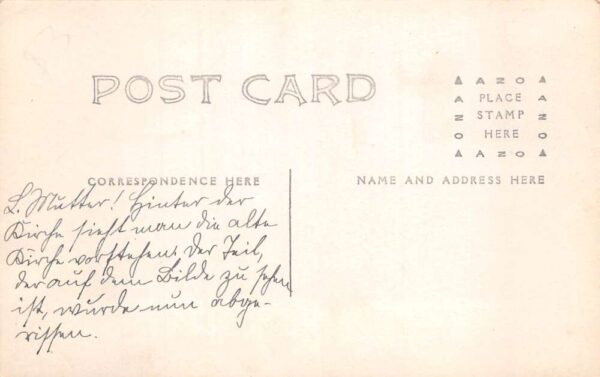 POST CARD
AZO
PLACE
STAMP
HERE
AZO
CORRESPONDENCE HERE
NAME AND ADDRESS HERE
L. Mutter! Hinter der
Kirche sieht man die alte
Kirche vorstehen. Der Teil,
der auf dem Bilde zu sehen
ist, wurde nun abge-
rissen.